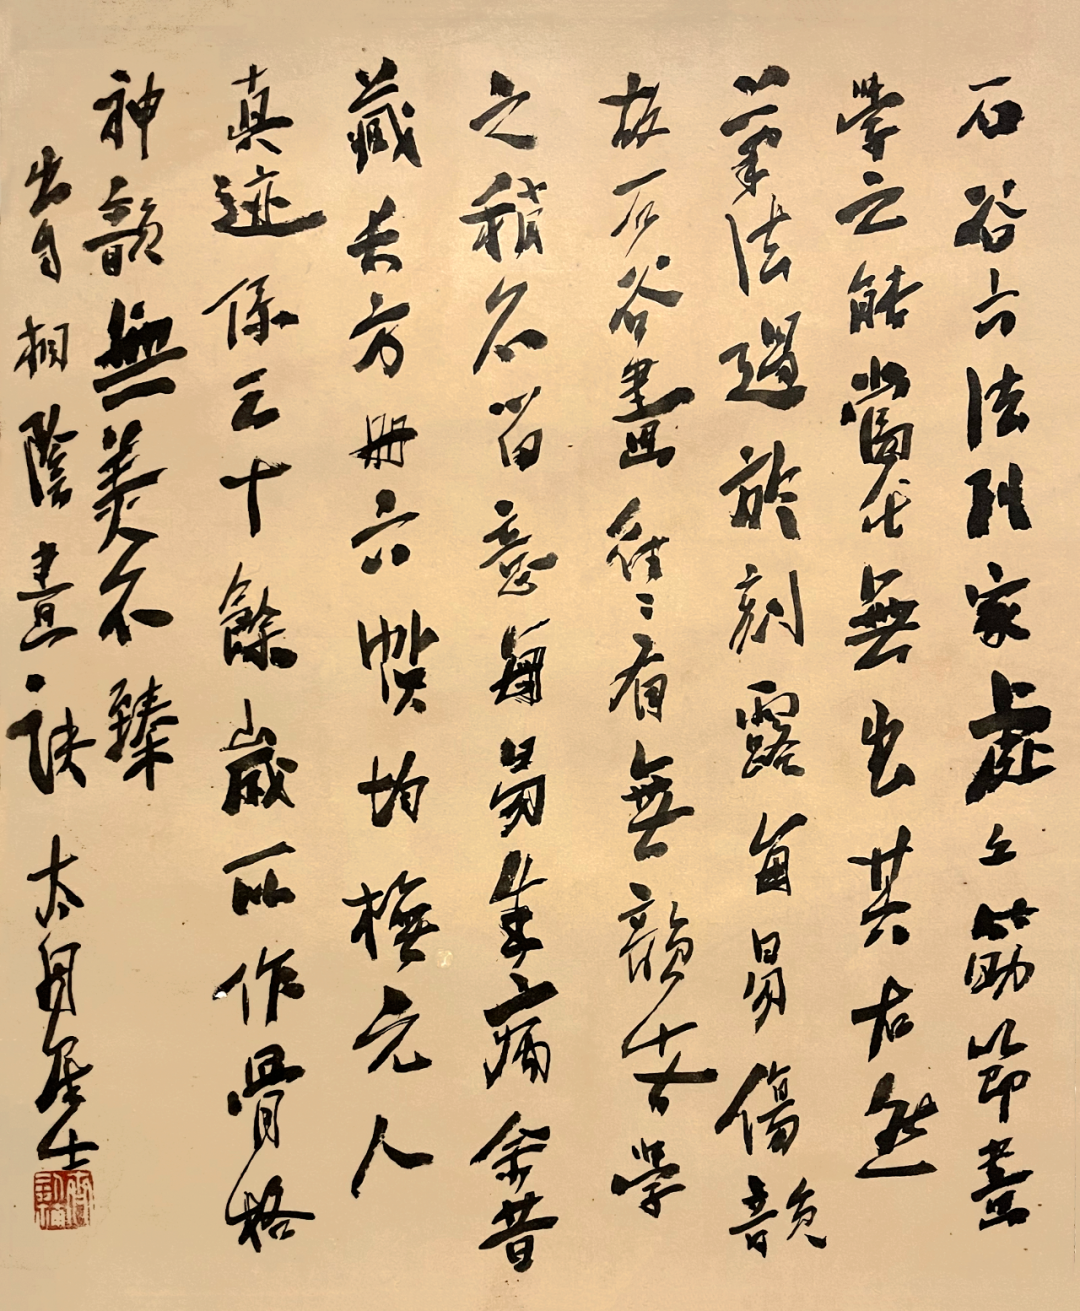 石谷六法到家處〻筋節畫
學之能當代無出其右然
筆法過於刻露每易傷韻
故石谷畫往〻有無韻者學
之稍不留意每易生病余昔
藏長方冊六幀均橅元人
真迹係三十餘歲所作骨格
神韻無美不臻
出自桐陰畫訣 太居士